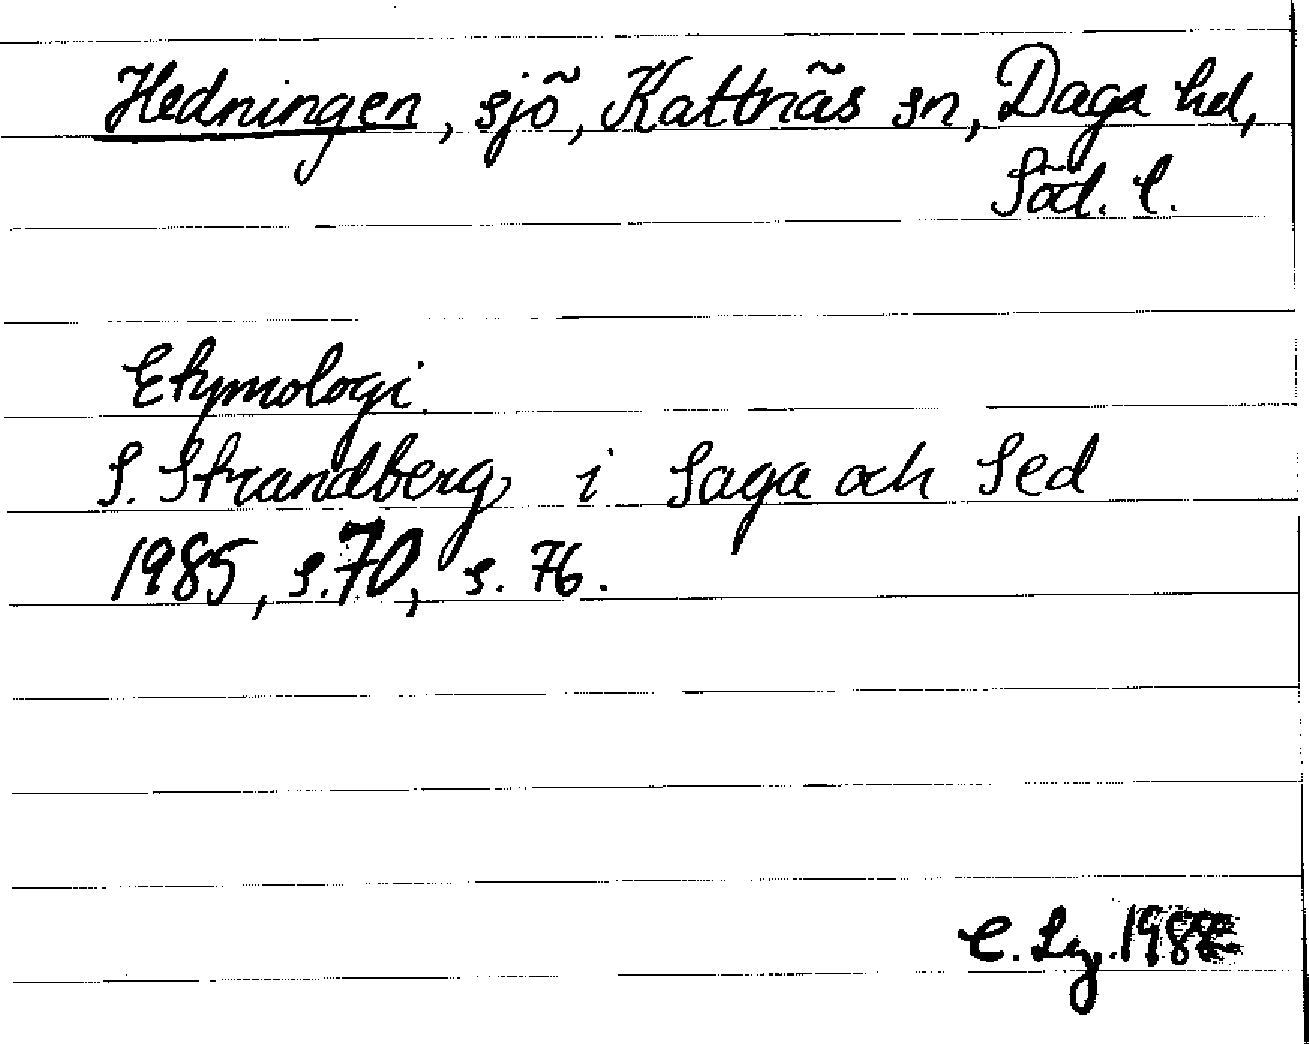 Hedningen, sjö, Kattnäs sn, Daga hd,
Söd. l.
Etymologi.
S. Strandberg, i Saga och Sed
1985, s. 70, s. 76.
C. Lg.